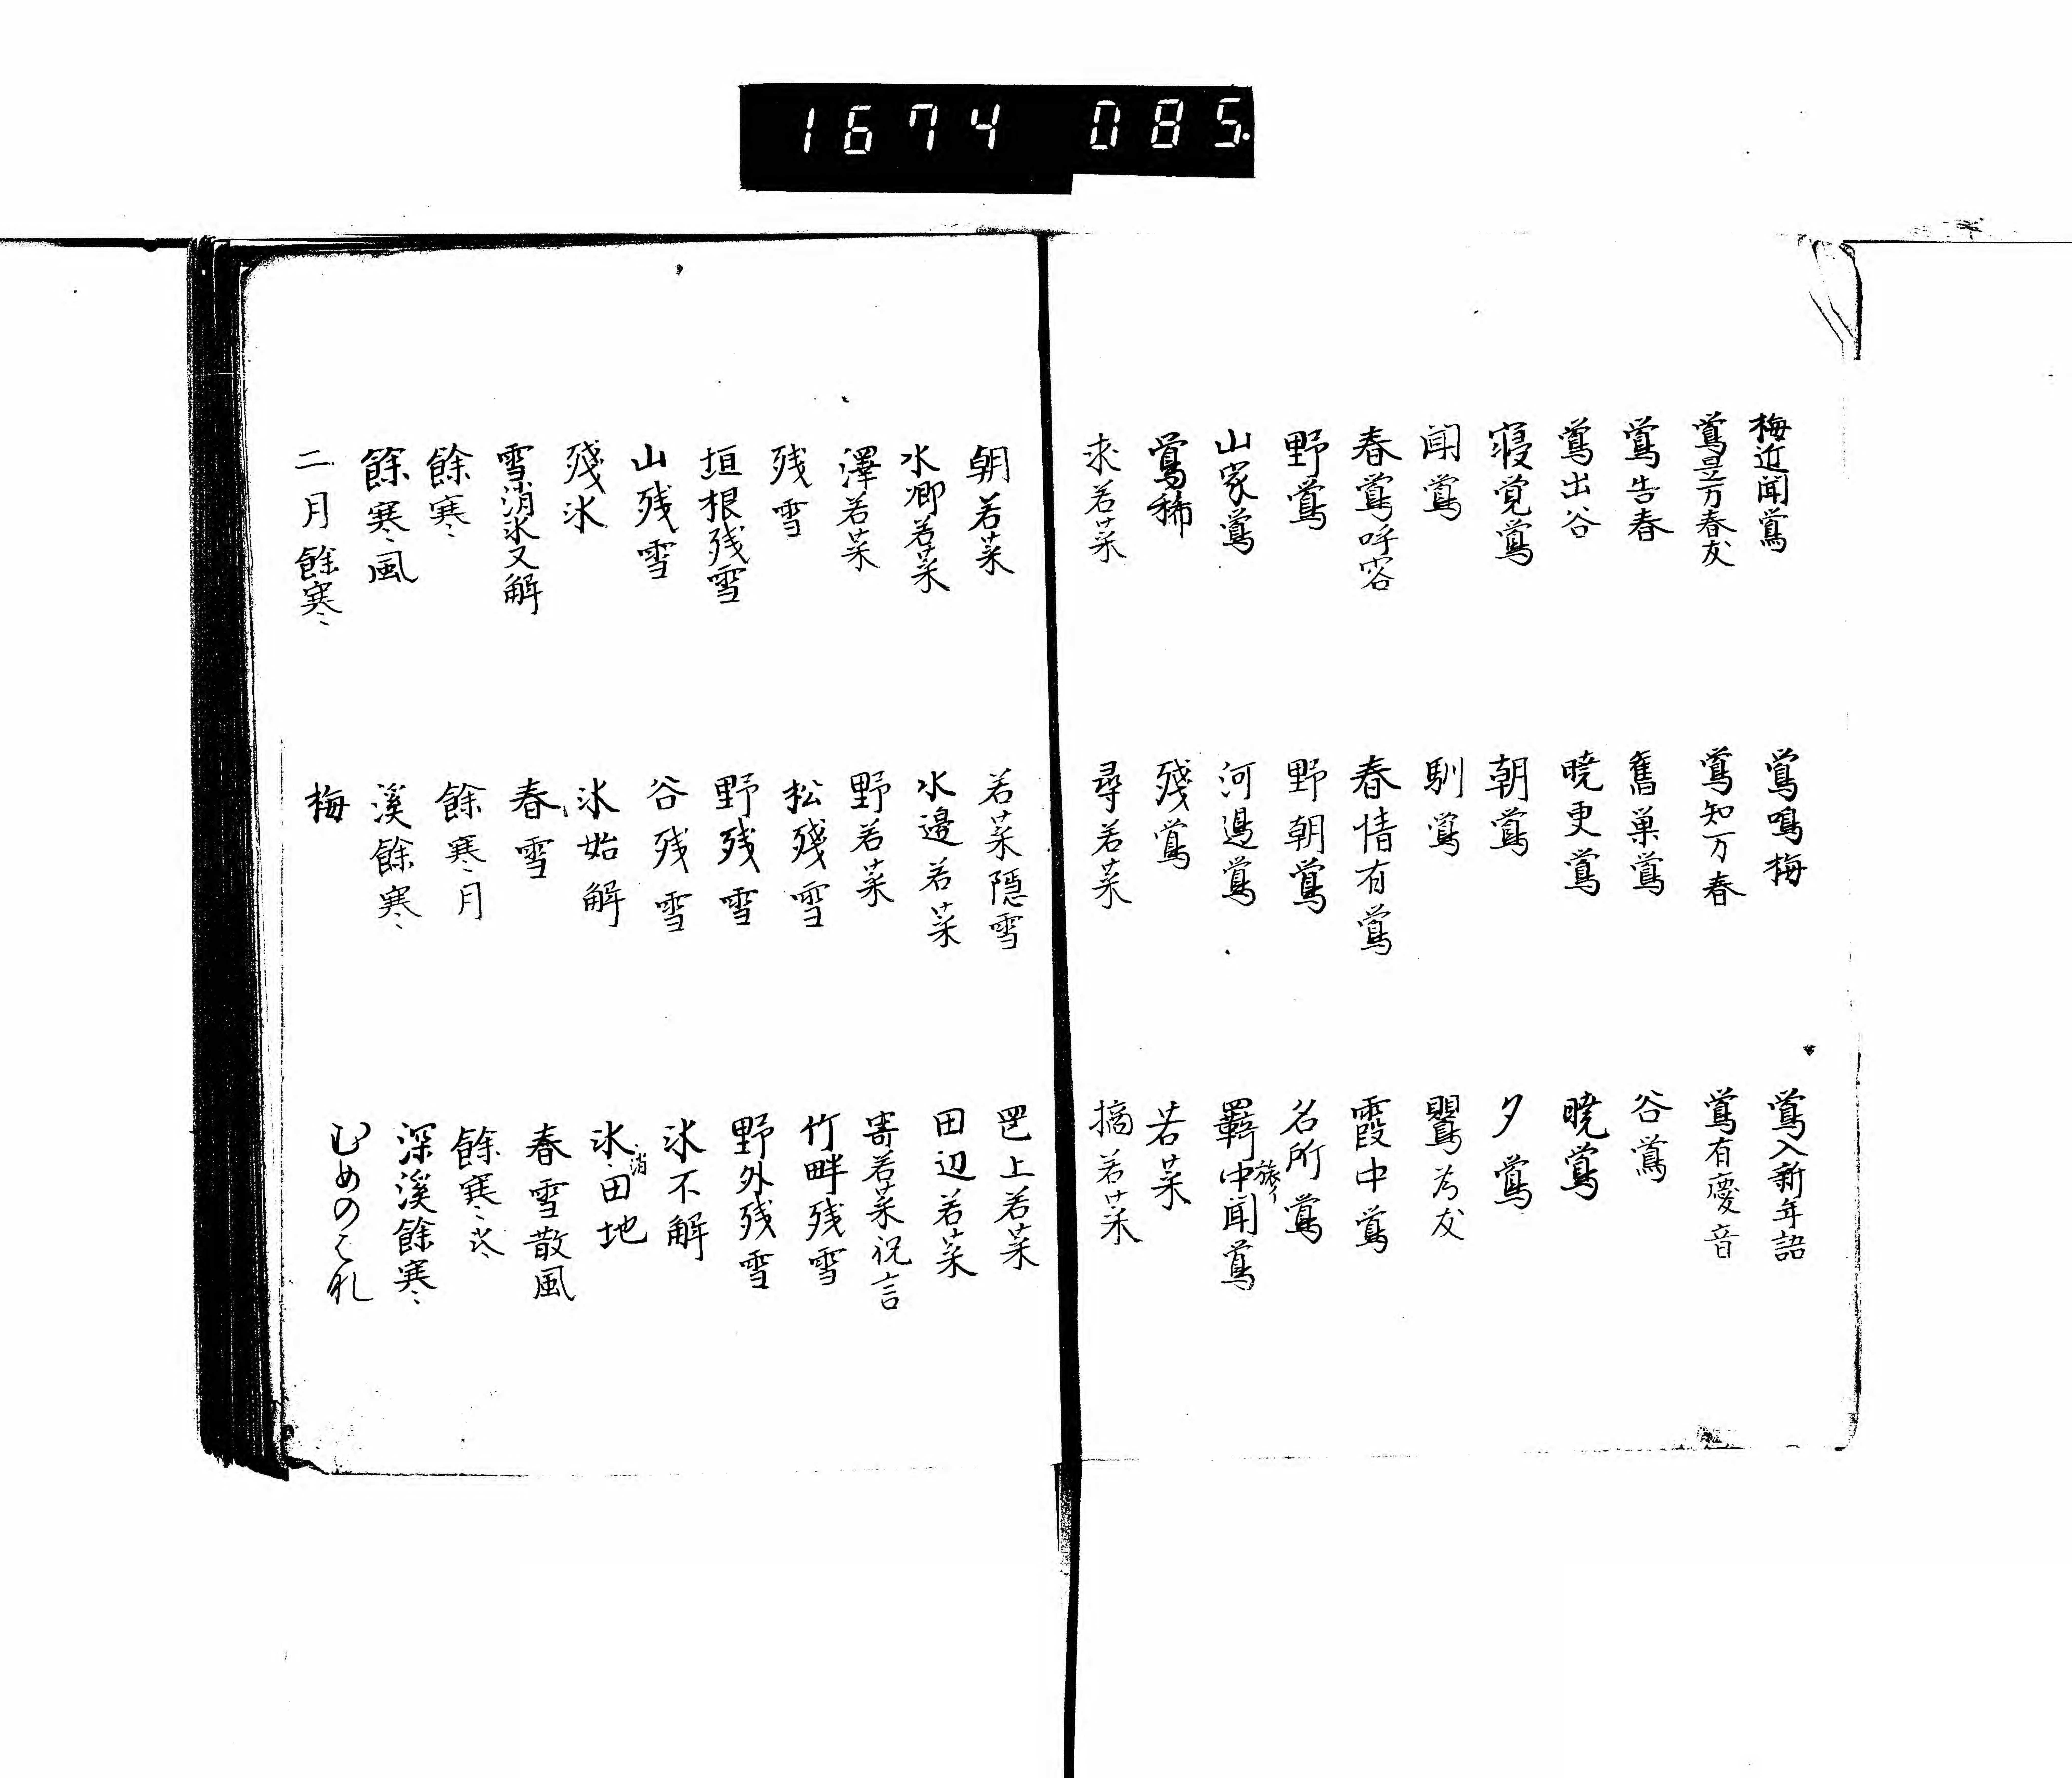 1674 085.
梅近聞鴬 鴬鳴梅 鴬入新年語
鴬是万春友 鴬知万春 鴬有慶音
鴬告春 舊巣鴬 谷鴬
鴬出谷 暁更鴬 暁鴬
寝覚鴬 朝鴬 夕鴬
聞鴬 馴鴬 鸎為友
春鴬呼客 春情有鴬 霞中鴬
野鴬 野朝鴬 名所鴬
山家鴬 河邉鴬 羇中聞鴬
旅イ
鴬稀 残鴬 若菜
求若菜 尋若菜 摘若菜
朝若菜 若菜隠雪 罡上若菜
水郷若菜 水邉若菜 田辺若菜
澤若菜 野若菜 寄若菜祝言
残雪 松残雪 竹畔残雪
垣根残雪 野残雪 野外残雪
山残雪 谷残雪 氷不解
残氷 氷始解 氷消田地
雪消氷又解 春雪 春雪散風
餘寒 餘寒月 餘寒氷
餘寒風 溪餘寒 深溪餘寒
二月餘寒 梅 むめのはな